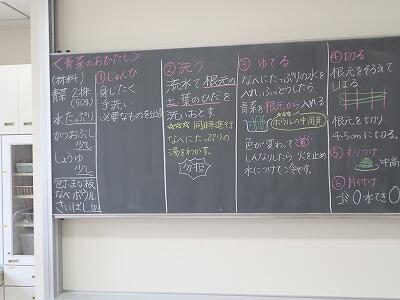 <青菜のおひたし>
(材料)
青菜 2株
(50g)
水 たっぷり
かつおぶし
少し
しょうゆ
少し
包丁 まな板
なべ ボウル
さいばし 皿
①じゅんび
身じたく
手洗い
必要なものを出す
②洗う
流水で根元の
土、葉のひだを
洗いおとす。
☆☆☆ 同時進行
なべにたっぷりの
湯をわかす。
分担
③ ゆでる
なべにたっぷりの水を
入れ、ふっとうしたら
青菜を根元から入れる
☆☆☆ ボウルの中用意
色が変わって
しんなりしたら火を止め
水につけてひやす。
④切る
根元をそろえて
しぼる
根元を切り
4-5cmに切る。
⑤もりつけ
中高
⑥片付け
ゴミ0 水てき0